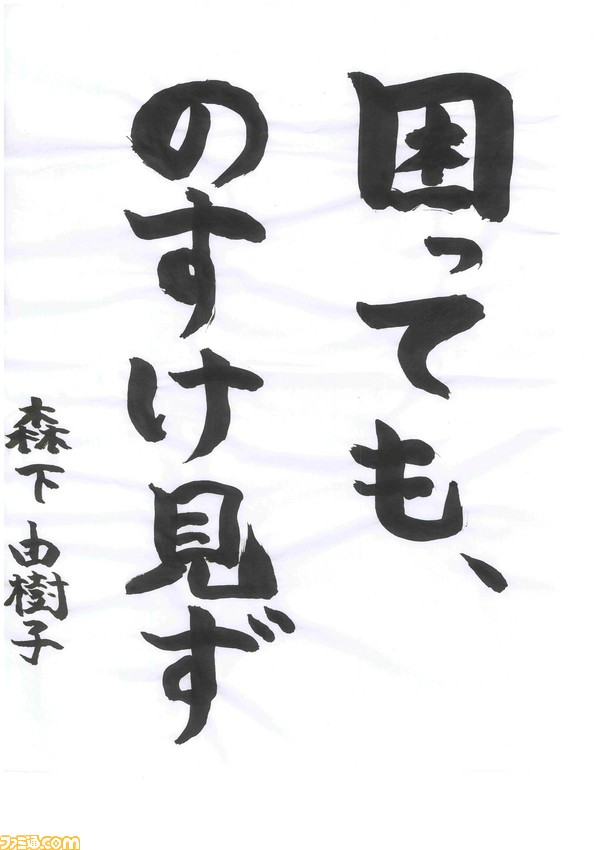 困っても、
のすけ見ず
森下 由樹子
ファミ通.com